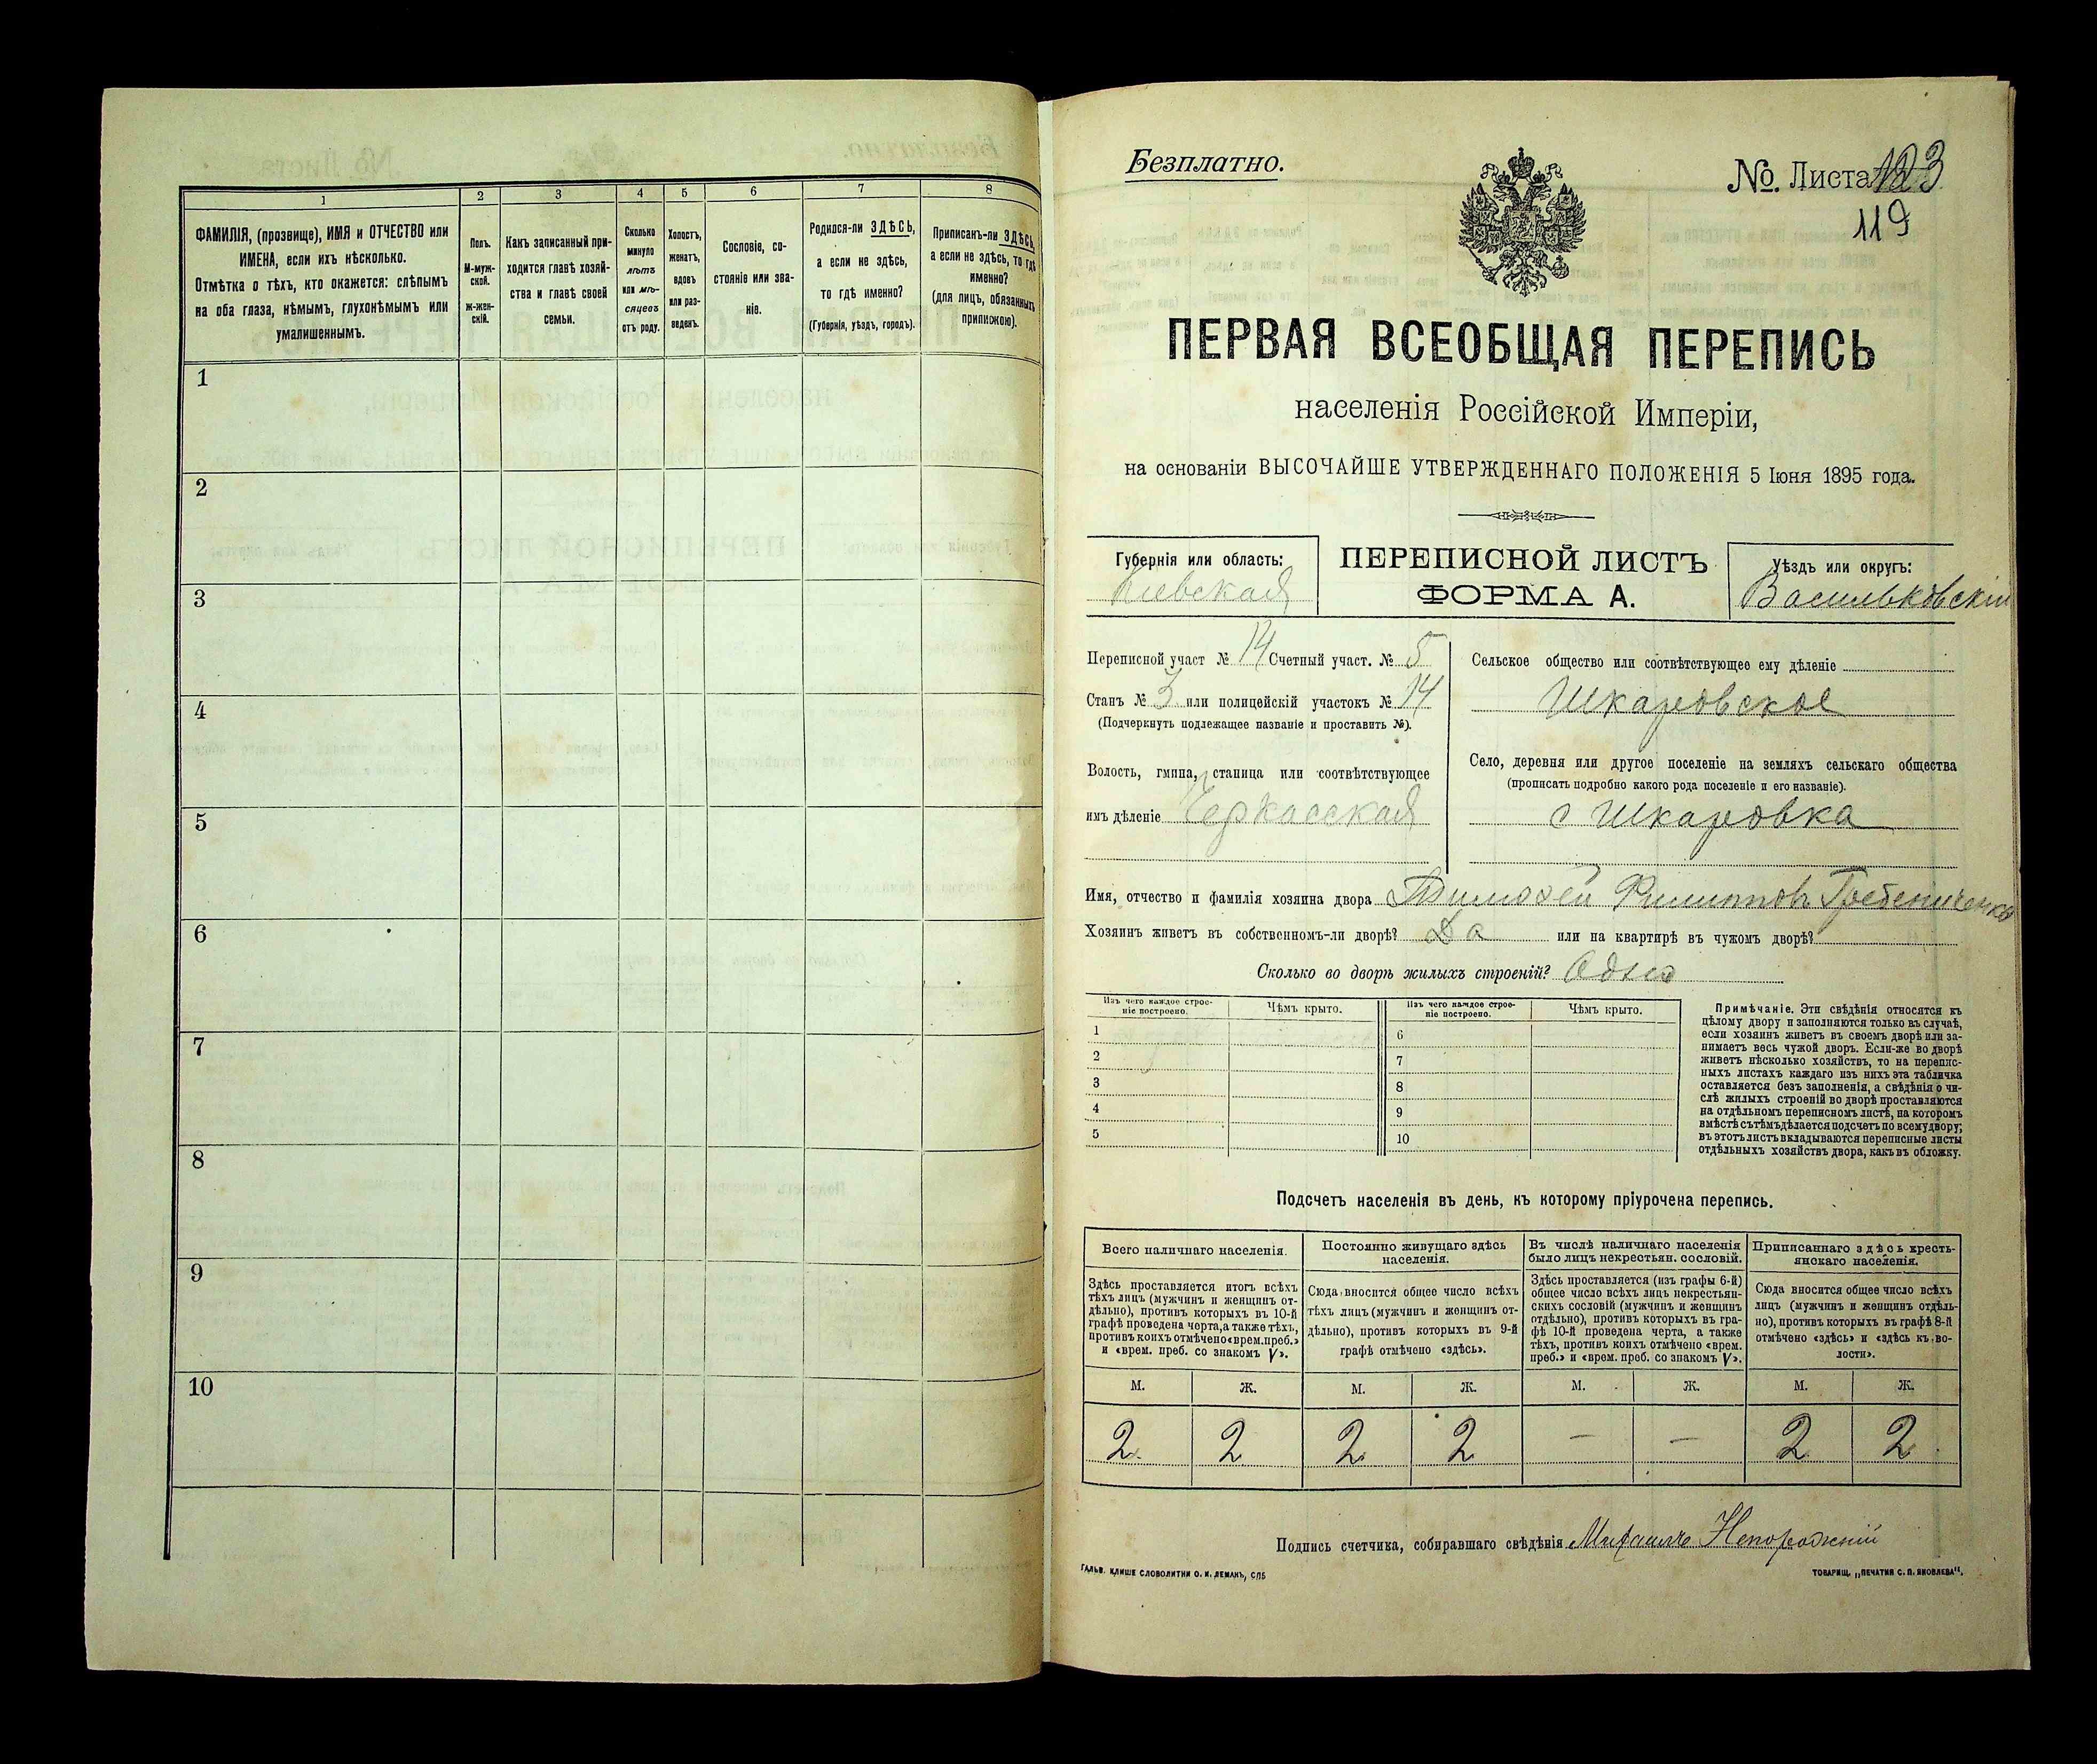 1 2 3 4 5 6 7 8
ФАМИЛІЯ, (прозвище), ИМЯ и ОТЧЕСТВО или
ИМЕНА, если ихъ нѣсколько.
Отмѣтка о тѣхъ, кто окажется: слѣпымъ
на оба глаза, нѣмымъ, глухонѣмымъ или
умалишеннымъ.
Полъ.
М-муж-
ской.
ж-жен-
скій.
Какъ записанный при-
ходится главѣ хозяй-
ства и главѣ своей
семьи.
Сколько
минуло
лѣтъ
или мѣ-
сяцевъ
отъ роду.
Холостъ,
женатъ,
вдовъ
или раз-
веденъ.
Сословіе, со-
стояніе или зва-
ніе.
Родился-ли ЗДѢСЬ,
а если не здѣсь,
то гдѣ именно?
(Губернія, уѣздъ, городъ).
Приписанъ-ли ЗДѢСЬ,
а если не здѣсь, то гдѣ
именно?
(для лицъ, обязанныхъ
припискою).
1
2
3
4
5
6
7
8
9
10
Безплатно.
№. Листа 123
119
ПЕРВАЯ ВСЕОБЩАЯ ПЕРЕПИСЬ
населенія Россійской Имперіи,
на основаніи ВЫСОЧАЙШЕ УТВЕРЖДЕННАГО ПОЛОЖЕНІЯ 5 Іюня 1895 года.
Губернія или область:
Кіевская
ПЕРЕПИСНОЙ ЛИСТЪ
ФОРМА А.
Уѣздъ или округъ:
Васильковскій
Переписной участ № 14 Счетный участ. № 5
Станъ № 3 или полицейскій участокъ № 14
(Подчеркнуть подлежащее названіе и проставить №).
Волость, гмина, станица или соотвѣтствующее
имъ дѣленіе Черкасская
Сельское общество или соотвѣтствующее ему дѣленіе
Шкаровское
Село, деревня или другое поселеніе на земляхъ сельскаго общества
(прописать подробно какого рода поселеніе и его названіе).
с Шкаровка
Имя, отчество и фамилія хозяина двора Тимофей Филипповъ Гребениченко
Хозяинъ живетъ въ собственномъ-ли дворѣ? Да или на квартирѣ въ чужомъ дворѣ?
Сколько во дворѣ жилыхъ строеній? Одно
Изъ чего каждое строе-
ніе построено.
Чѣмъ крыто.
Изъ чего каждое строе-
ніе построено.
Чѣмъ крыто.
1 6
2 7
3 8
4 9
5 10
Примѣчаніе. Эти свѣдѣнія относятся къ
цѣлому двору и заполняются только въ случаѣ,
если хозяинъ живетъ въ своемъ дворѣ или за-
нимаетъ весь чужой дворъ. Если-же во дворѣ
живетъ нѣсколько хозяйствъ, то на перепис-
ныхъ листахъ каждаго изъ нихъ эта табличка
оставляется безъ заполненія, а свѣдѣнія о чи-
слѣ жилыхъ строеній во дворѣ проставляются
на отдѣльномъ переписномъ листѣ, на которомъ
вмѣстѣ съ тѣмъ дѣлается подсчетъ по всему двору;
въ этотъ листъ вкладываются переписные листы
отдѣльныхъ хозяйствъ двора, какъ въ обложку.
Подсчетъ населенія въ день, къ которому пріурочена перепись.
Всего наличнаго населенія.
Здѣсь проставляется итогъ всѣхъ
тѣхъ лицъ (мужчинъ и женщинъ от-
дѣльно), противъ которыхъ въ 10-й
графѣ проведена черта, а также тѣхъ,
противъ коихъ отмѣчено «врем. преб.»
и «врем. преб. со знакомъ V».
Постоянно живущаго здѣсь
населенія.
Сюда вносится общее число всѣхъ
тѣхъ лицъ (мужчинъ и женщинъ от-
дѣльно), противъ которыхъ въ 9-й
графѣ отмѣчено «здѣсь».
Въ числѣ наличнаго населенія
было лицъ некрестьян. сословій.
Здѣсь проставляется (изъ графы 6-й)
общее число всѣхъ лицъ некрестьян-
скихъ сословій (мужчинъ и женщинъ
отдѣльно), противъ которыхъ въ гра-
фѣ 10-й проведена черта, а также
тѣхъ, противъ коихъ отмѣчено «врем.
преб.» и «врем. преб. со знакомъ V».
Приписаннаго здѣсь кресть-
янскаго населенія.
Сюда вносится общее число всѣхъ
лицъ (мужчинъ и женщинъ отдѣль-
но), противъ которыхъ въ графѣ 8-й
отмѣчено «здѣсь» и «здѣсь къ во-
лости».
М. Ж. М. Ж. М. Ж. М. Ж.
2 2 2 2 — — 2 2
Подпись счетчика, собиравшаго свѣдѣнія Михаилъ Непорожній
ГАЛЬВ. КЛИШЕ СЛОВОЛИТНИ О. И. ЛЕМАНЪ, СПБ
ТОВАРИЩ. „ПЕЧАТНЯ С. П. ЯКОВЛЕВА".